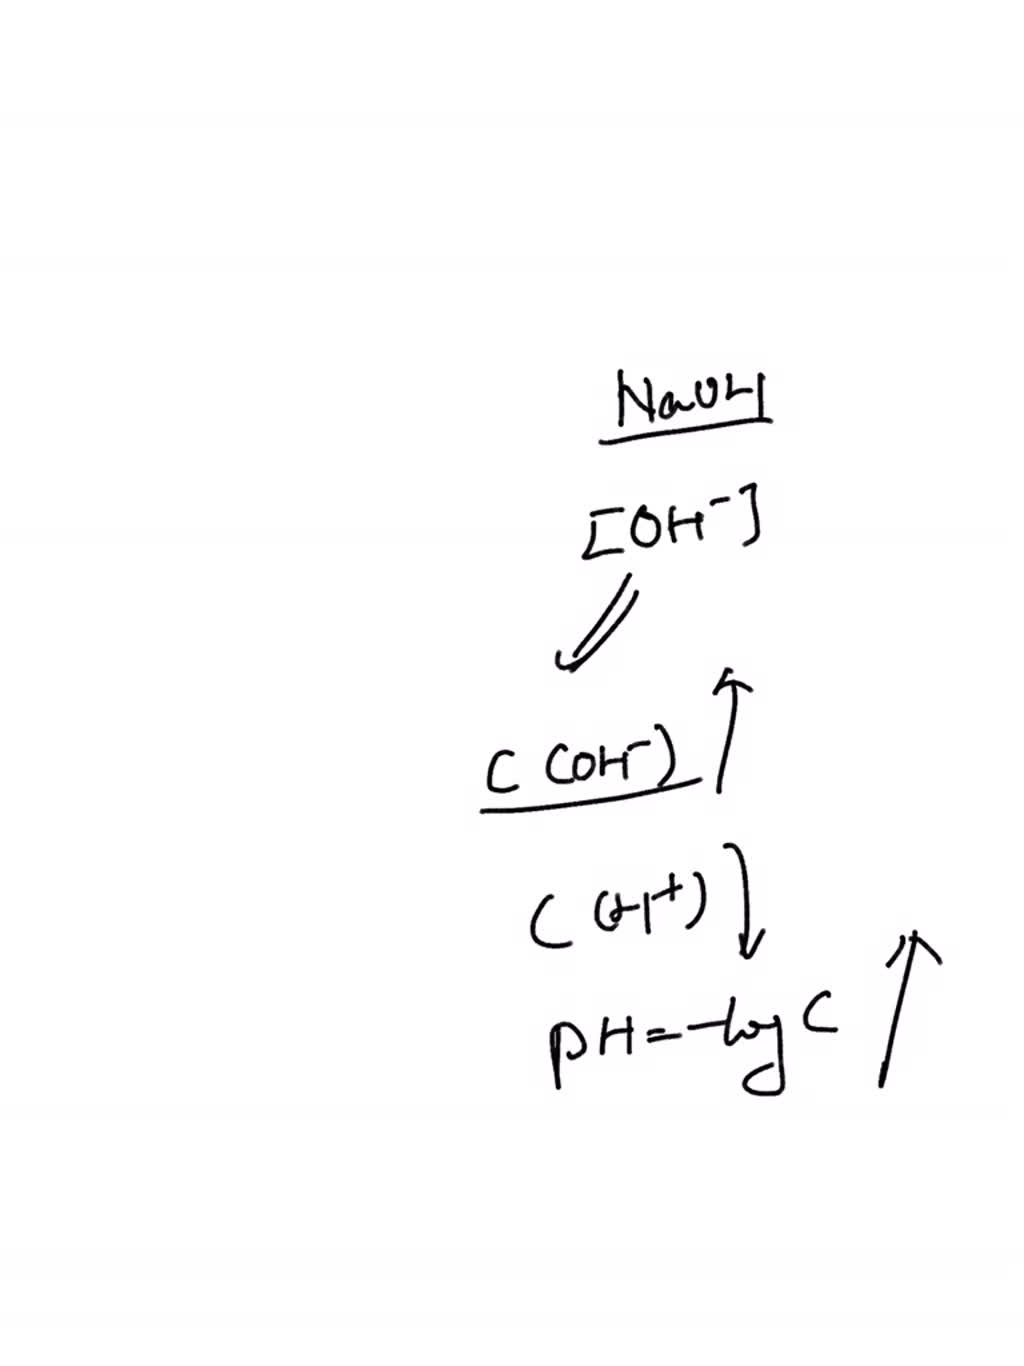 NaOH
[OH⁻]
C (OH⁻) ↑
C (H⁺) ↓
pH = -log C ↑